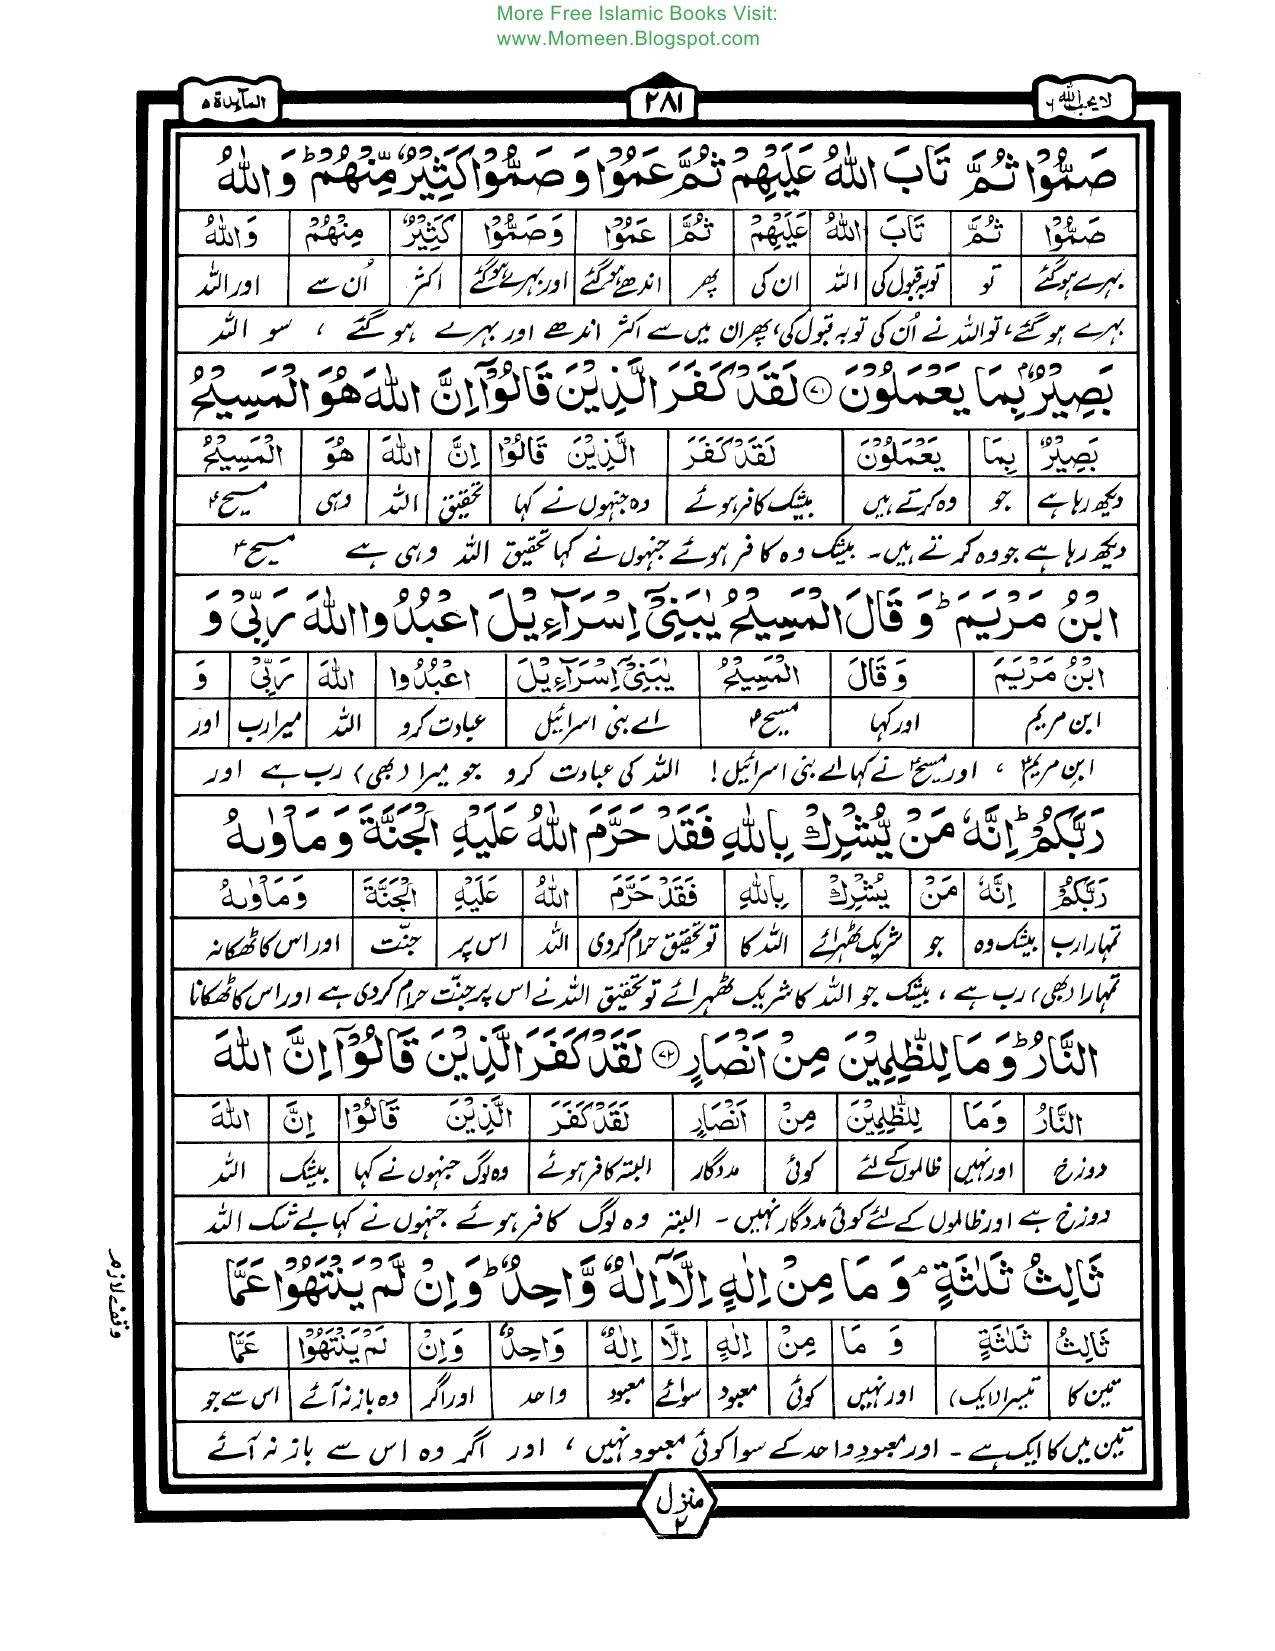 More Free Islamic Books Visit:
www.Momeen.Blogspot.com
لا یحب اللہ ٦ ٢٨١ المآیدۃ ٥
صَمُّوْا ثُمَّ تَابَ اللّٰهُ عَلَیْهِمْ ثُمَّ عَمُوْا وَ صَمُّوْا كَثِیْرٌ مِّنْهُمْ ؕ وَ اللّٰهُ
صَمُّوْا ثُمَّ تَابَ اللّٰهُ عَلَیْهِمْ ثُمَّ عَمُوْا وَصَمُّوْا كَثِیْرٌ مِنْهُمْ وَاللّٰهُ
بہرے ہوگئے تو توبہ قبول کی اللہ ان کی پھر اندھے ہوگئے اور بہرے ہوگئے اکثر اُن سے اور اللہ
بہرے ہو گئے، تو اللہ نے اُن کی توبہ قبول کی، پھر ان میں سے اکثر اندھے اور بہرے ہو گئے ، سو اللہ
بَصِیْرٌۢ بِمَا یَعْمَلُوْنَ ﴿٧١﴾ لَقَدْ كَفَرَ الَّذِیْنَ قَالُوْۤا اِنَّ اللّٰهَ هُوَ الْمَسِیْحُ
بَصِیْرٌ بِمَا یَعْمَلُوْنَ لَقَدْ كَفَرَ الَّذِیْنَ قَالُوْا اِنَّ اللّٰهَ هُوَ الْمَسِیْحُ
دیکھ رہا ہے جو وہ کرتے ہیں بیشک کافر ہوئے وہ جنہوں نے کہا تحقیق اللہ وہی مسیحؑ
دیکھ رہا ہے جو وہ کرتے ہیں۔ بیشک وہ کافر ہوئے جنہوں نے کہا تحقیق اللہ وہی ہے مسیحؑ
ابْنُ مَرْیَمَ ؕ وَ قَالَ الْمَسِیْحُ یٰبَنِیْۤ اِسْرَآءِیْلَ اعْبُدُوا اللّٰهَ رَبِّیْ وَ
ابْنُ مَرْیَمَ وَ قَالَ الْمَسِیْحُ یٰبَنِیْۤ اِسْرَآءِیْلَ اعْبُدُوا اللّٰهَ رَبِّیْ وَ
ابن مریم اور کہا مسیحؑ اے بنی اسرائیل عبادت کرو اللہ میرا رب اور
ابنِ مریمؑ ، اور مسیحؑ نے کہا اے بنی اسرائیل! اللہ کی عبادت کرو جو میرا (بھی) رب ہے اور
رَبَّكُمْ ؕ اِنَّهٗ مَنْ یُّشْرِكْ بِاللّٰهِ فَقَدْ حَرَّمَ اللّٰهُ عَلَیْهِ الْجَنَّةَ وَ مَاْوٰىهُ
رَبَّكُمْ اِنَّهٗ مَنْ یُشْرِكْ بِاللّٰهِ فَقَدْ حَرَّمَ اللّٰهُ عَلَیْهِ الْجَنَّةَ وَ مَاْوٰىهُ
تمہارا رب بیشک وہ جو شریک ٹھہرائے اللہ کا تو تحقیق حرام کردی اللہ اس پر جنّت اور اس کا ٹھکانہ
تمہارا (بھی) رب ہے ، بیشک جو اللہ کا شریک ٹھہرائے تو تحقیق اللہ نے اس پر جنّت حرام کردی ہے اور اس کا ٹھکانا
النَّارُ ؕ وَ مَا لِلظّٰلِمِیْنَ مِنْ اَنْصَارٍ ﴿٧٢﴾ لَقَدْ كَفَرَ الَّذِیْنَ قَالُوْۤا اِنَّ اللّٰهَ
النَّارُ وَمَا لِلظّٰلِمِیْنَ مِنْ اَنْصَارٍ لَقَدْ كَفَرَ الَّذِیْنَ قَالُوْا اِنَّ اللّٰهَ
دوزخ اور نہیں ظالموں کے لئے کوئی مددگار البتہ کافر ہوئے وہ لوگ جنہوں نے کہا بیشک اللہ
دوزخ ہے اور ظالموں کے لئے کوئی مددگار نہیں۔ البتہ وہ لوگ کافر ہوئے جنہوں نے کہا بے شک اللہ
ثَالِثُ ثَلٰثَةٍ ۘ وَ مَا مِنْ اِلٰهٍ اِلَّاۤ اِلٰهٌ وَّاحِدٌ ؕ وَ اِنْ لَّمْ یَنْتَهُوْا عَمَّا
ثَالِثُ ثَلٰثَةٍ وَ مَا مِنْ اِلٰهٍ اِلَّا اِلٰهٌ وَاحِدٌ وَاِنْ لَمْ یَنْتَهُوْا عَمَّا
تین کا تیسرا (ایک) اور نہیں کوئی معبود سوائے معبود واحد اور اگر وہ باز نہ آئے اس سے جو
تین میں کا ایک ہے۔ اور معبودِ واحد کے سوا کوئی معبود نہیں ، اور اگر وہ اس سے باز نہ آئے
وقف لازم
منزل ٢